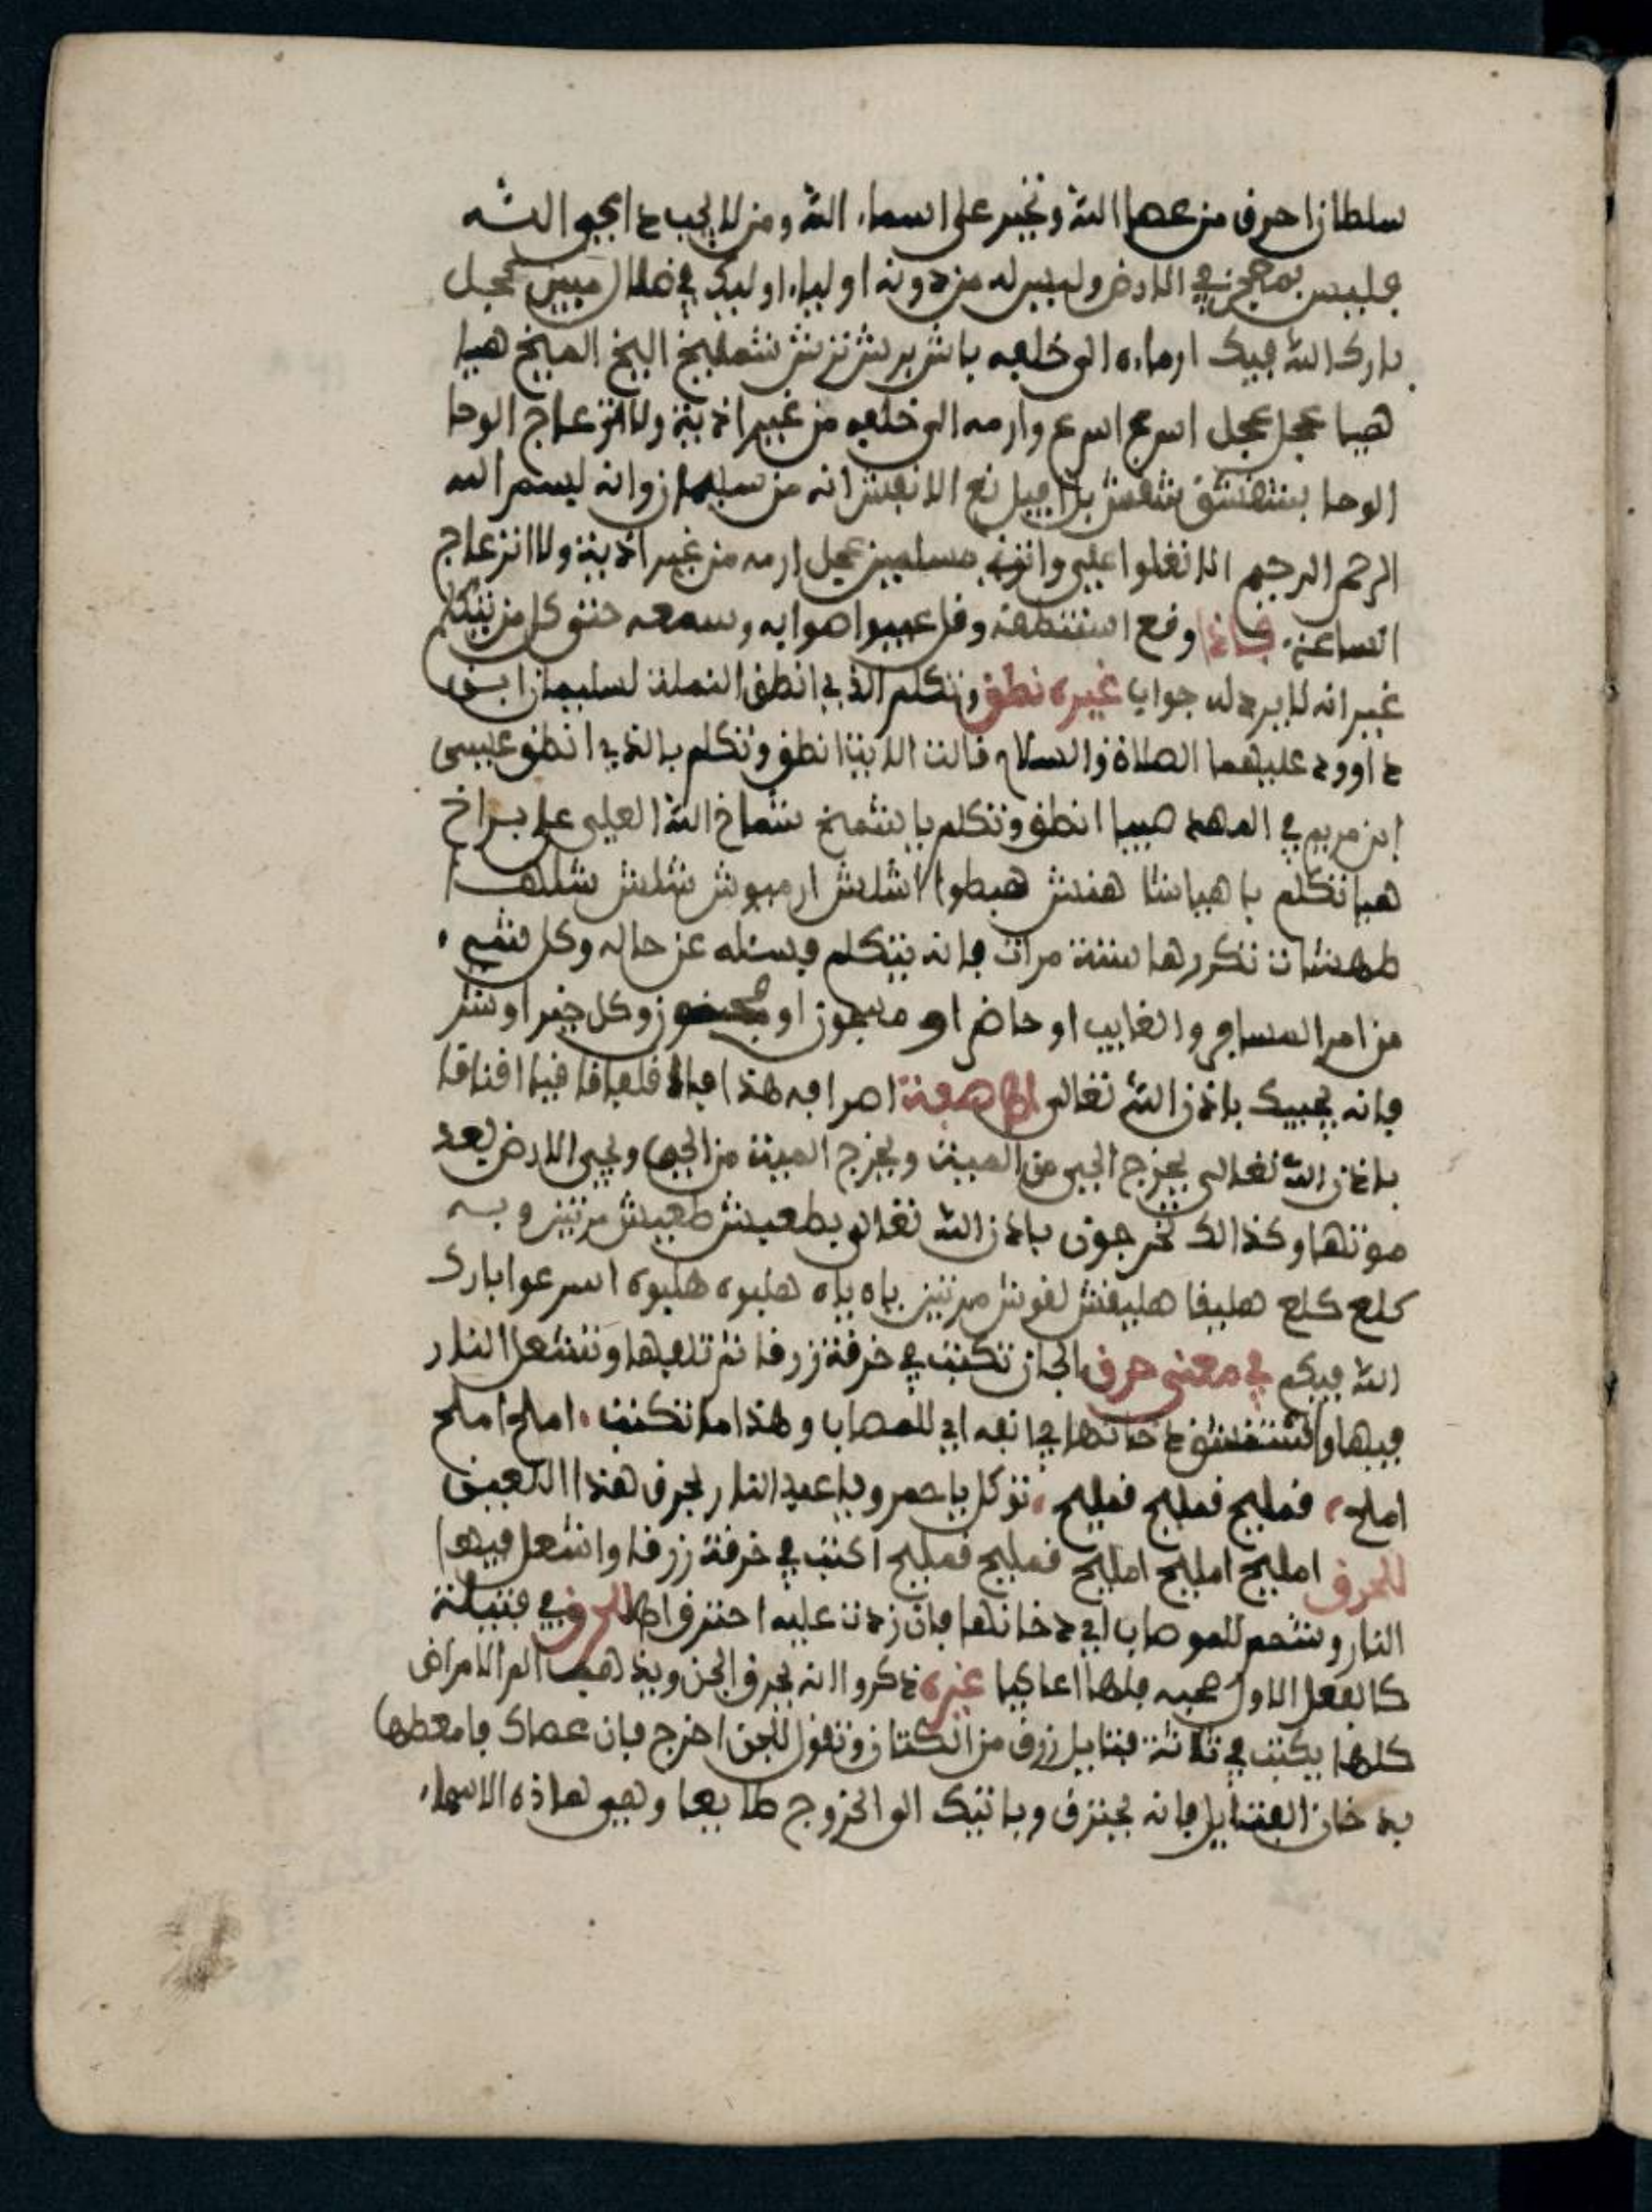 سلطان احرق من عصا الله وتجبر على اسماء الله ومن لا يجب داعي الله
فليس بمعجز في الارض وليس له من دونه اولياء اوليك في ضلال مبين عجل
بارك الله فيك ارماه الى خلفه ياش بريش نزنش شمليخ اليخ المينخ هيا
هيا عجل عجل اسرع اسرع وارمه الى خلفه من غير اذية ولا انزعاج الوحا
الوحا انه من سليمان وانه بسم الله
الرحمن الرحيم الا تعلوا علي واتوني مسلمين عجل ارمه من غير اذية ولا انزعاج
الساعة فاذا وقع استنطقه وقل حتى كل من يتكلم
غير انه لا يرد له جواب غيره نطق وتكلم الذي انطق النملة لسليمان ابن
داوود عليهما الصلاة والسلام قالت الاية انطق وتكلم بالذي انطق عيسى
ابن مريم في المهد صبيا انطق وتكلم يا شمخ شماخ الله العلي على براخ
هيا تكلم يا هيا شا هندش هبطوا اشلش ارميوش شلش شلهدا
طهشات تكررها ستة مرات فانه يتكلم فيسئله عن حاله وكل شيء
من امر المسافر والغايب او حاضر او مسجون او وكل خير او شر
فانه يجيبك باذن الله تعالى اصرافه هذا فياه قلعاقا قيا اقناقا
باذن الله تعالى يخرج الحي من الميت ويخرج الميت من الحي ويحيي الارض بعد
موتها وكذالك تخرجون باذن الله تعالى بطعيش طعيش مرتين وبه
كلع كلع هليقا هليقش لقوش مرتين ياه ياه هليوه هليوه اسرعوا بارك
الله فيكم في معنى حرق الجان تكتب في خرقة زرقا ثم تلفها وتشعل النار
فيها وتستنشق دخانها في انفه اي للمصاب وهذا ما تكتب املح املح
املح قمليح قمليح قمليح توكل يا حمر ويا عبد النار بحرق هذا اللعين
للحرق امليح امليح امليح قمليح قمليح اكتب في خرقة زرقا واشعل فيها
النار وشحم للموصاب اي دخانها فان زدت عليه احترق للحرق في فتيلة
كالفعل الاول غيره ذكروا انه يحرق الجن ويذهب الم الامراض
كلها يكتب في ثلاثة فتايل زرق من الكتان وتقول للجن اخرج فان عصاك فامعطها
بدخان الفتايل فانه يحترق وياتيك الى الخروج طايعا وهي هاذه الاسماء